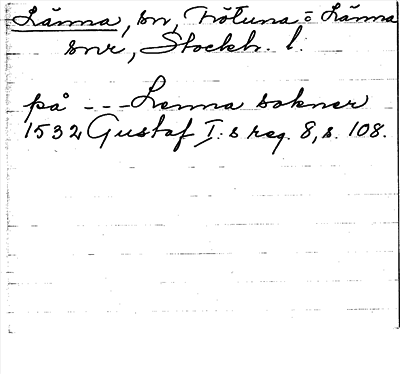 Länna, sn, Frötuna o Länna
snr, Stockh. l.
på - - - Lenna sokner
1532 Gustaf I:s reg. 8, s. 108.